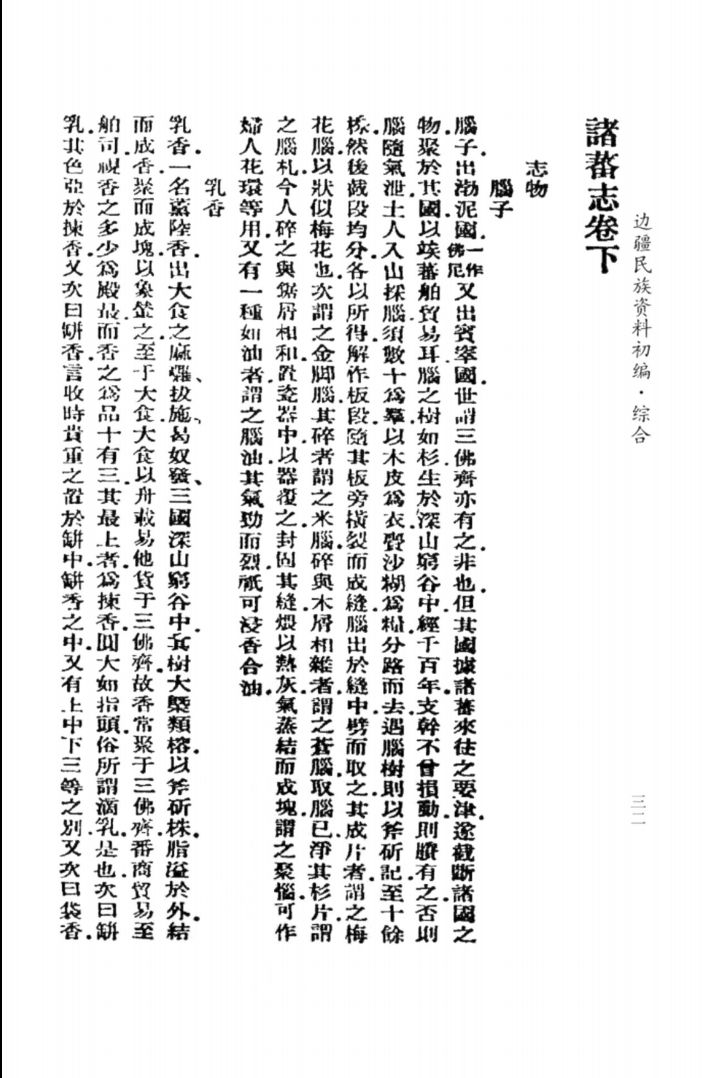 边疆民族资料初编·综合
三二
諸蕃志卷下
志物
腦子
腦子出渤泥國一作佛尼又出賓窣國世謂三佛齊亦有之非也但其國據諸蕃來往之要津遂截斷諸國之
物聚於其國以竢蕃舶貿易耳腦之樹如杉生於深山窮谷中經千百年支幹不曾損動則賸有之否則
腦隨氣泄土人入山採腦須數十為羣以木皮為衣賷沙糊為糧分路而去遇腦樹則以斧斫記至十餘
株然後截段均分各以所得解作板段隨其板旁橫裂而成縫腦出於縫中劈而取之其成片者謂之梅
花腦以狀似梅花也次謂之金脚腦其碎者謂之米腦碎與木屑相雜者謂之蒼腦取腦已淨其杉片謂
之腦札今人碎之與鋸屑相和置瓷器中以器覆之封固其縫煨以熱灰氣蒸結而成塊謂之聚惱可作
婦人花環等用又有一種如油者謂之腦油其氣勁而烈祇可浸香合油
乳香
乳香一名薰陸香出大食之麻囉拔施曷奴發三國深山窮谷中其樹大槩類榕以斧斫株脂溢於外結
而成香聚而成塊以象輂之至于大食大食以舟載易他貨于三佛齊故香常聚于三佛齊番商貿易至
舶司視香之多少為殿最而香之為品十有三其最上者為揀香圓大如指頭俗所謂滴乳是也次曰缾
乳其色亞於揀香又次曰缾香言收時貴重之置於缾中缾香之中又有上中下三等之別又次曰袋香